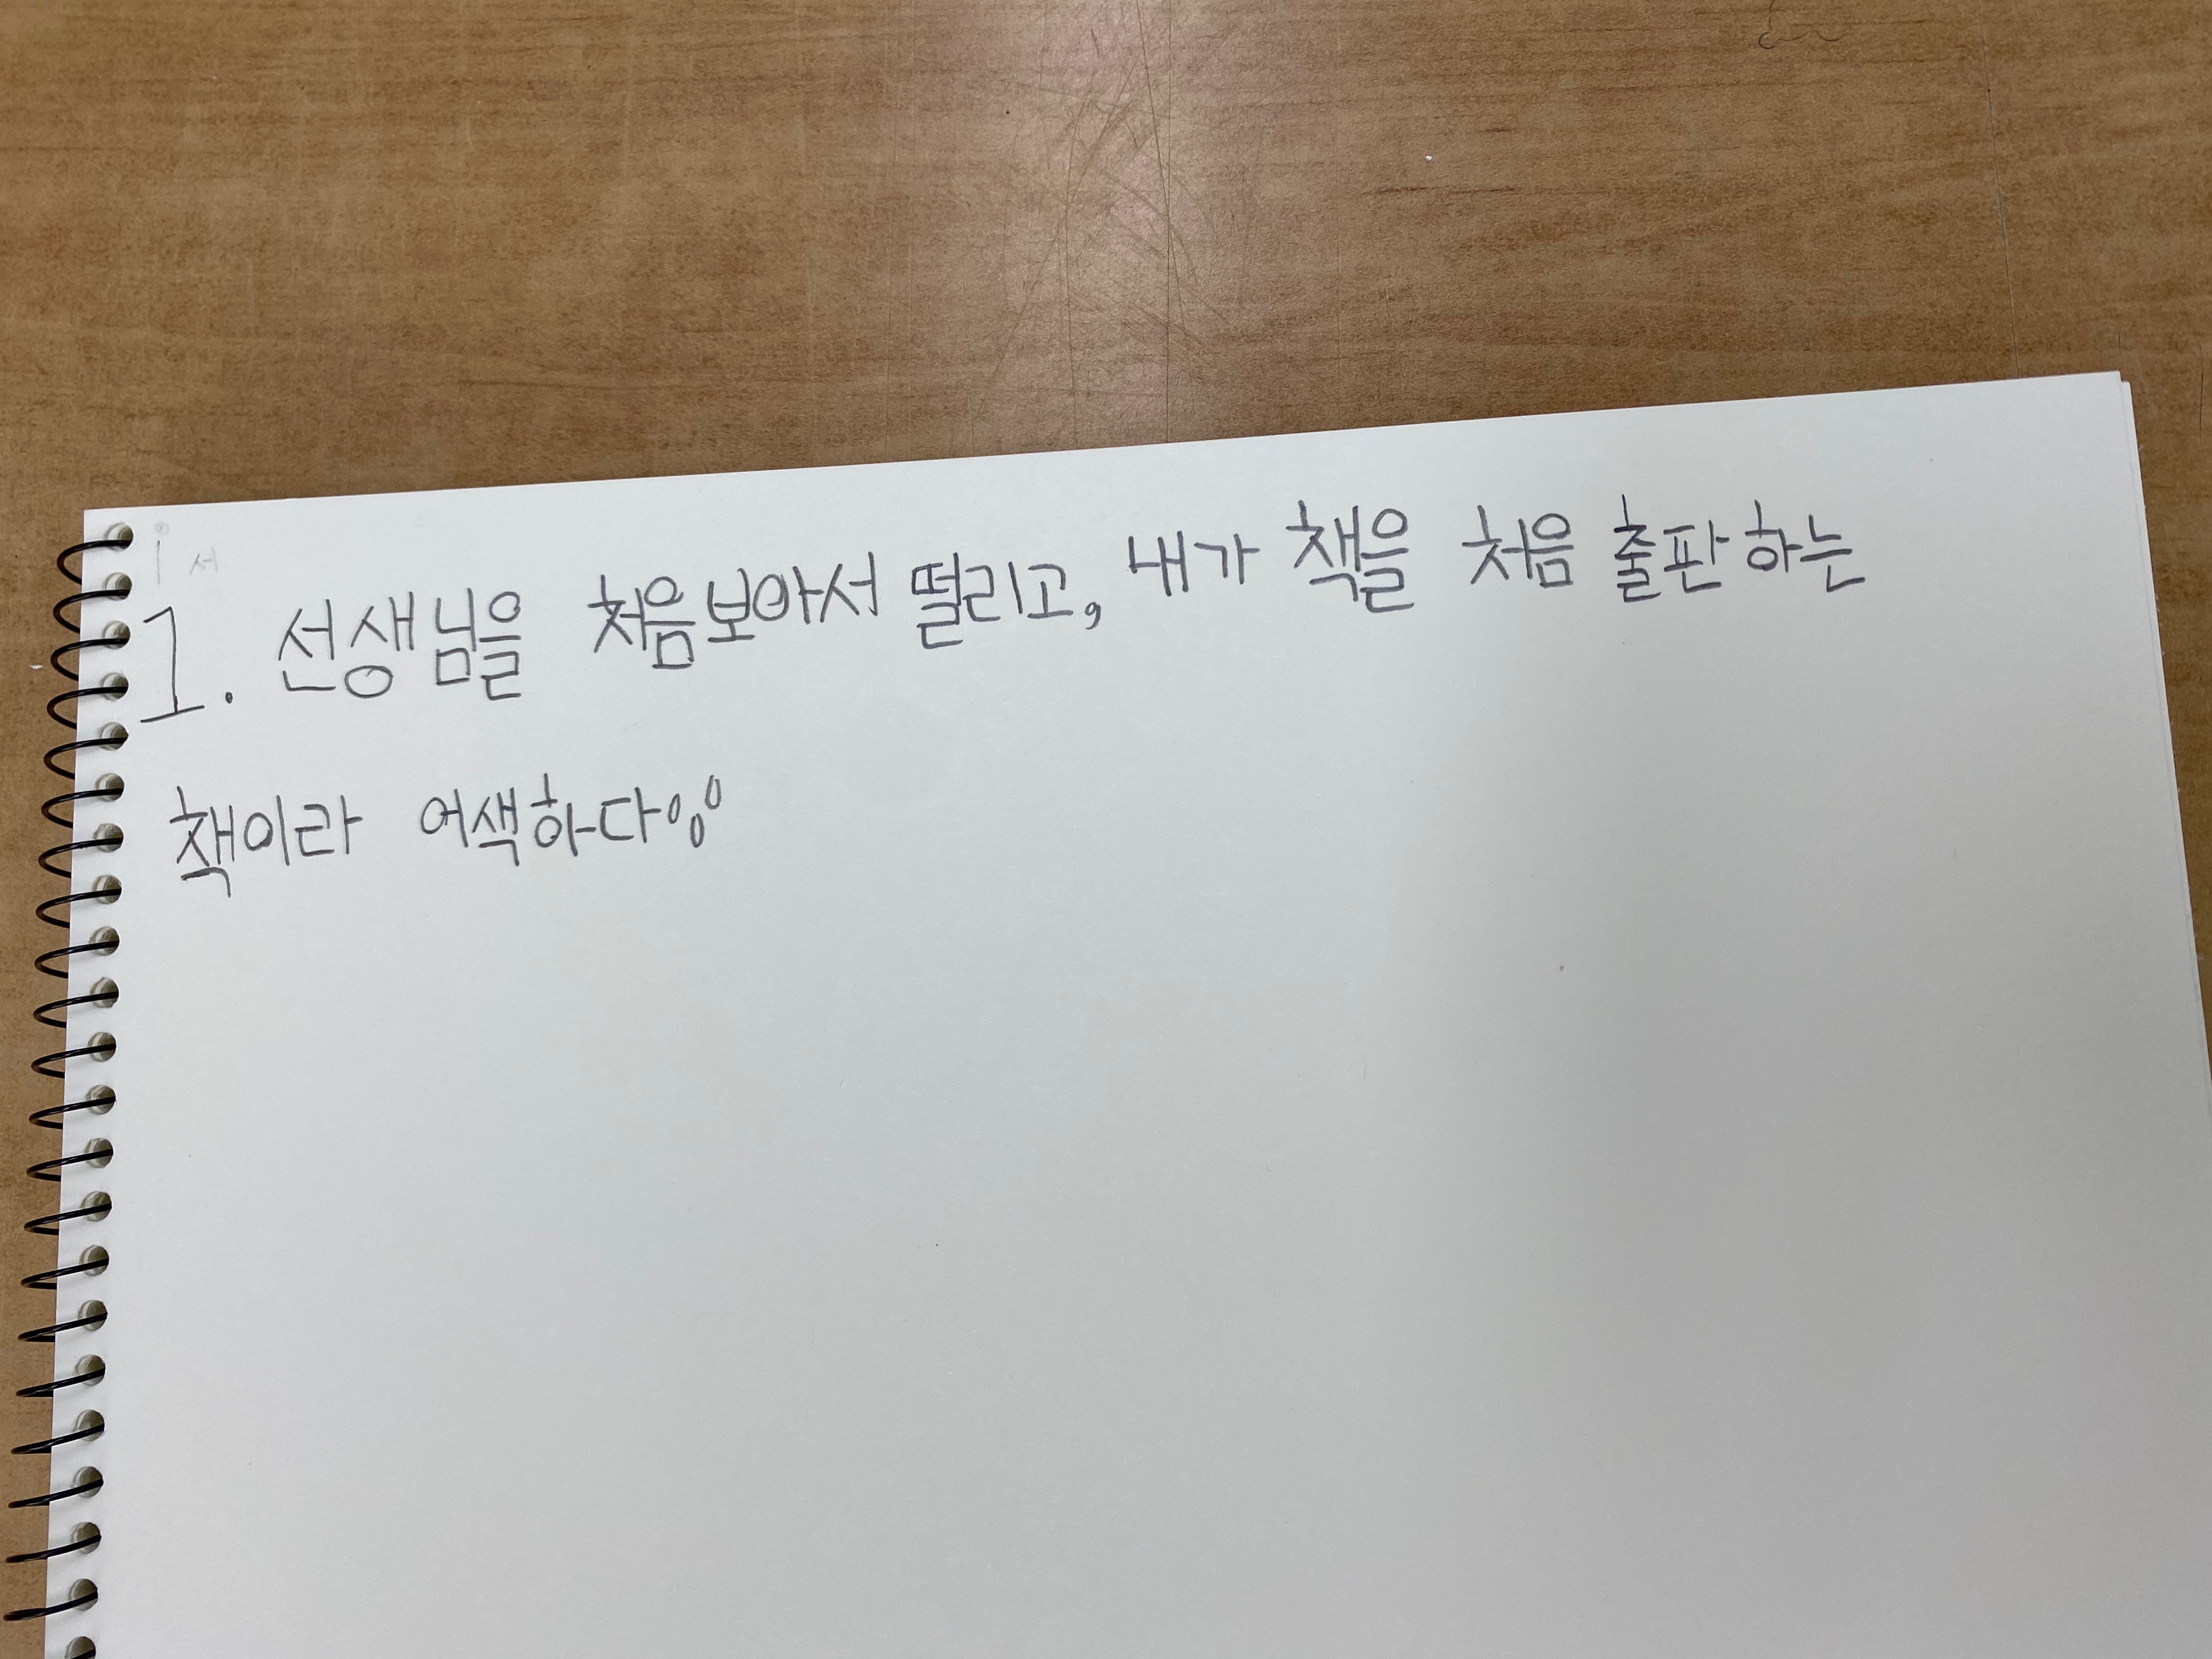 1. 선생님을 처음보아서 떨리고, 내가 책을 처음 출판하는
책이라 어색하다